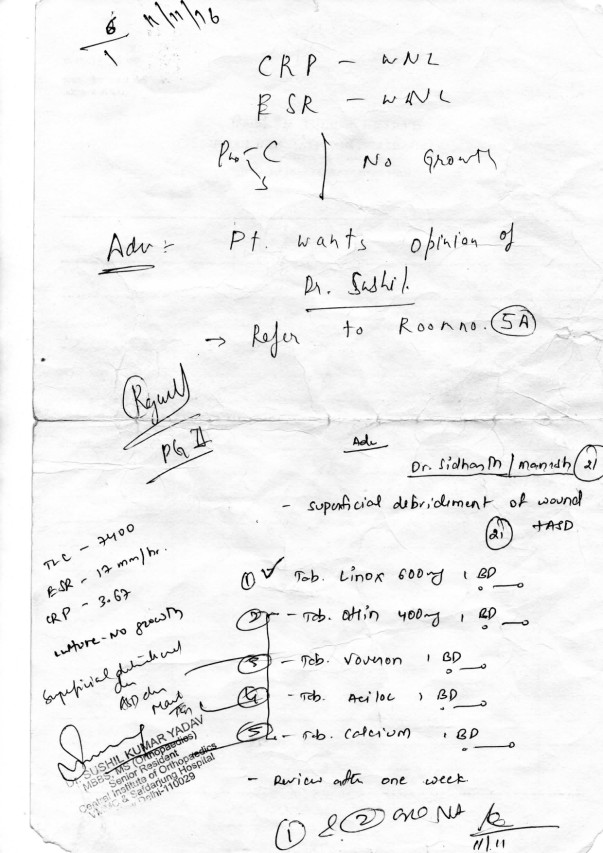 11/11/16
CRP - WNL
ESR - WNL
Pus - C
S
No Growth
Adv :- Pt. wants opinion of
Dr. Sushil.
→ Refer to Room no. 5A
PG II
Adv
Dr. Sidhanth / Manish 21
- superficial debridement of wound
21 + ASD
TLC - 7400
ESR - 17 mm/hr.
CRP - 3.67
culture - No growth
Superficial debridement
ASD
① ✓ Tab. Linox 600mg 1 BD
② - Tab. Oflin 400mg 1 BD
③ - Tab. Voveron 1 BD
④ - Tab. Aciloc 1 BD
⑤ - Tab. Calcium 1 BD
- Review after one week
Dr. SUSHIL KUMAR YADAV
MBBS, MS (Orthopaedics)
Senior Resident
Central Institute of Orthopaedics
VMMC & Safdarjung Hospital
New Delhi-110029
① & ② are NA
11/11